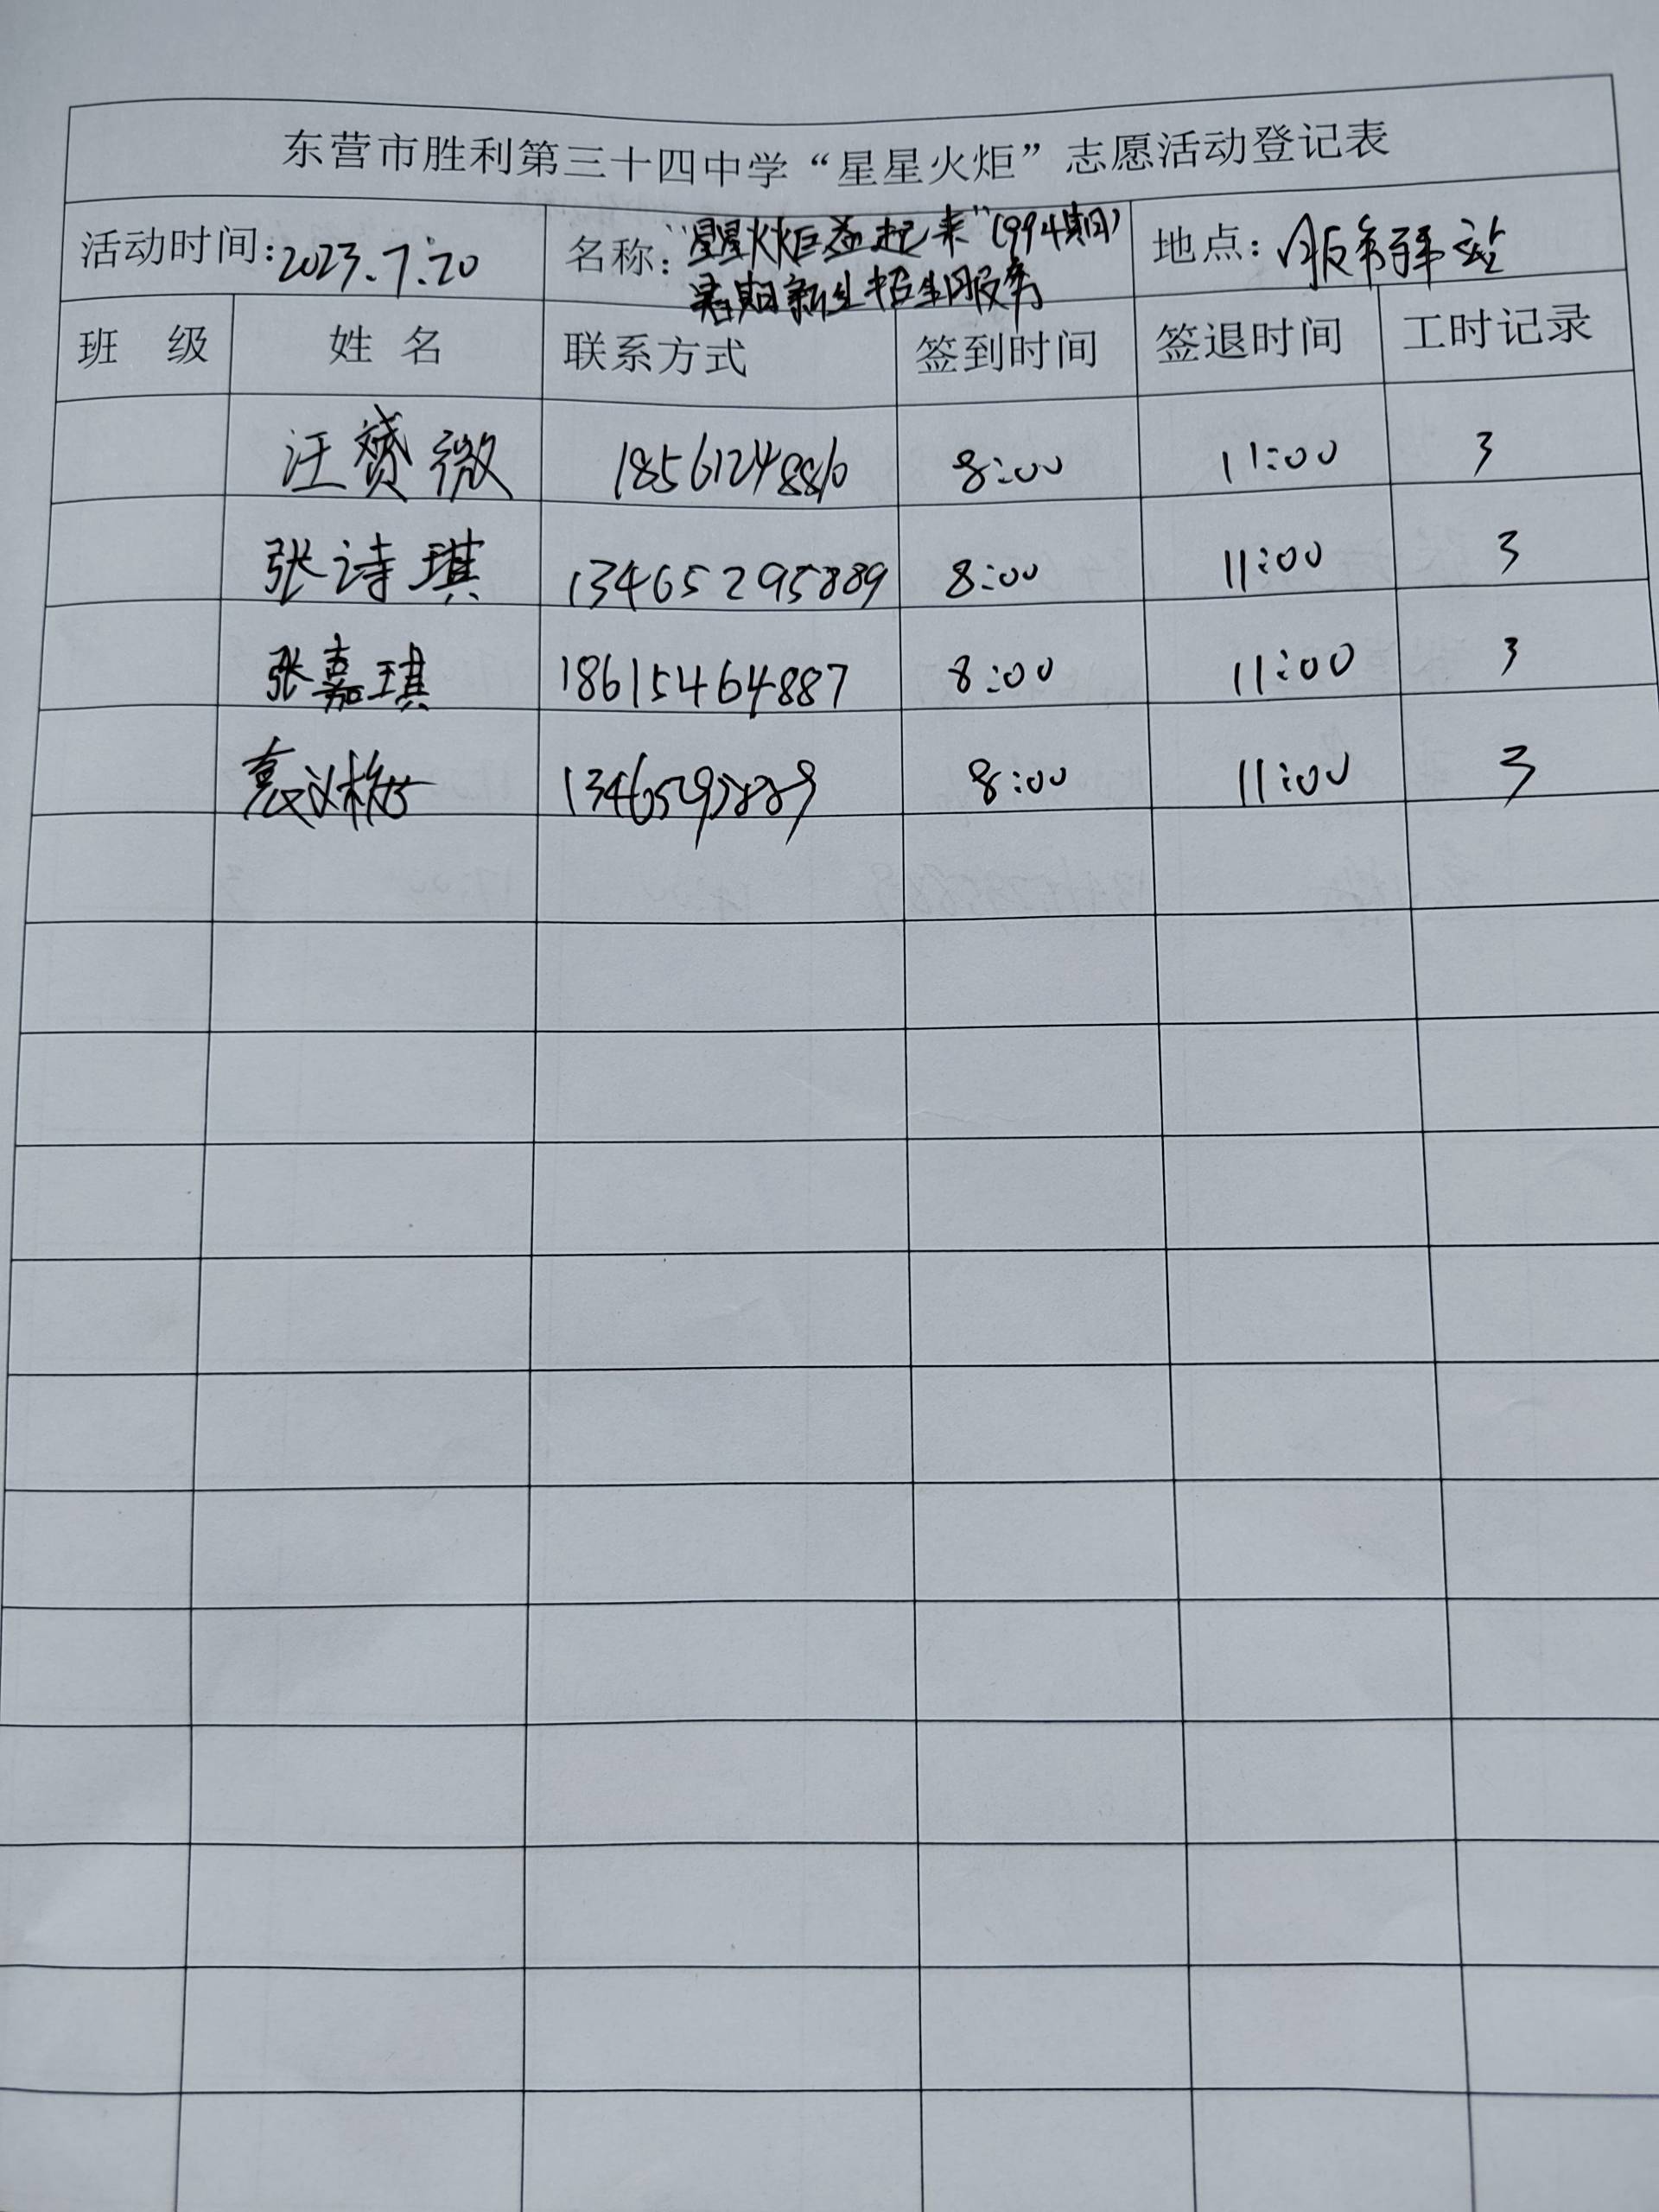 东营市胜利第三十四中学“星星火炬”志愿活动登记表
活动时间：2023.7.20 名称：“星星火炬益起来”(994期) 地点：服务驿站
暑期新生招生服务
班 级 姓 名 联系方式 签到时间 签退时间 工时记录
汪赟微 18561248810 8:00 11:00 3
张诗琪 13465295889 8:00 11:00 3
张嘉琪 18615464887 8:00 11:00 3
13465295889 8:00 11:00 3